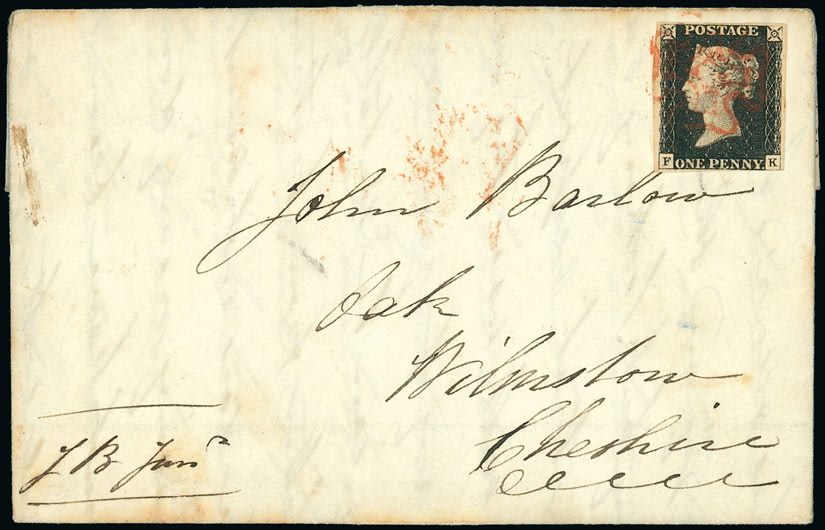 POSTAGE
F ONE PENNY. K
John Barlow
Oak
Wilmslow
Cheshire
J B Junr